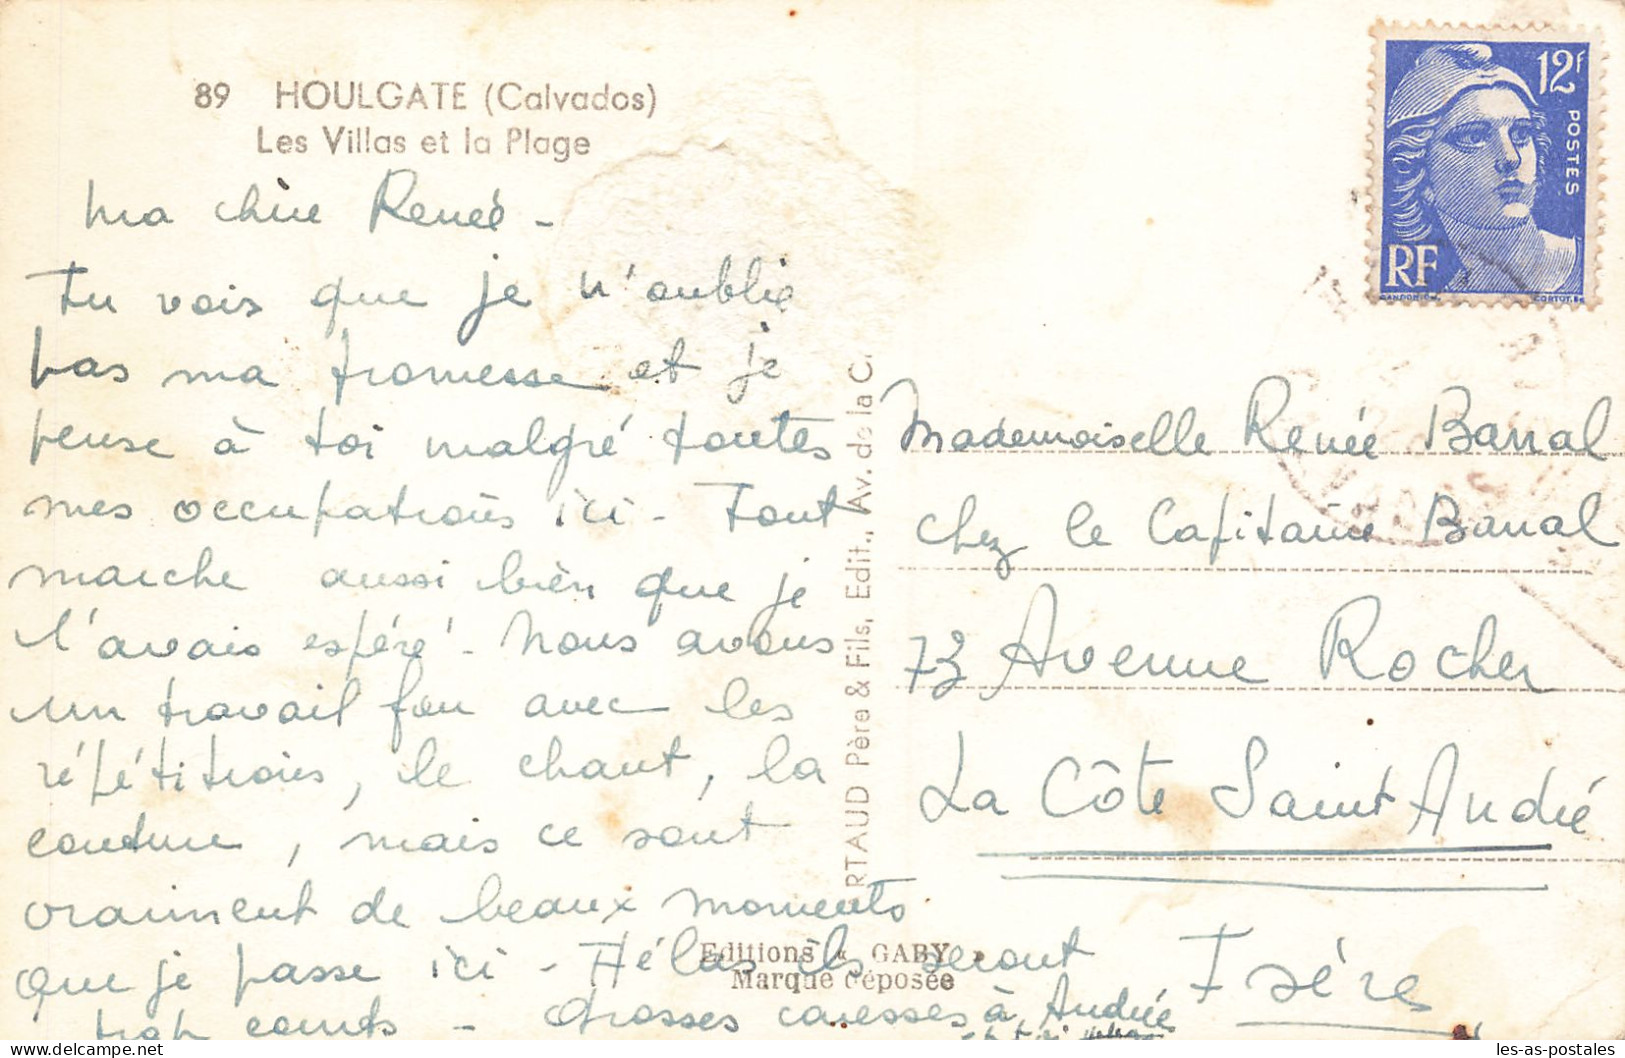 89 HOULGATE (Calvados)
Les Villas et la Plage
Ma chère Renée -
Tu vois que je n'oublie
pas ma promesse et je
pense à toi malgré toutes
mes occupations ici - Tout
marche aussi bien que je
l'avais espéré - Nous avons
un travail fou avec les
répétitions, le chant, la
couture, mais ce sont
vraiment de beaux moments
que je passe ici - Hélas ils seront
trop courts - Grosses caresses à Andrée
et toi
RTAUD Père & Fils, Edit., Av. de la C
Editions « GABY »
Marque déposée
12F
POSTES
RF
GANDON
CORTOT
Mademoiselle Renée Barral
chez le Capitaine Barral
73 Avenue Rocher
La Côte Saint André
Isère
les-as-postales